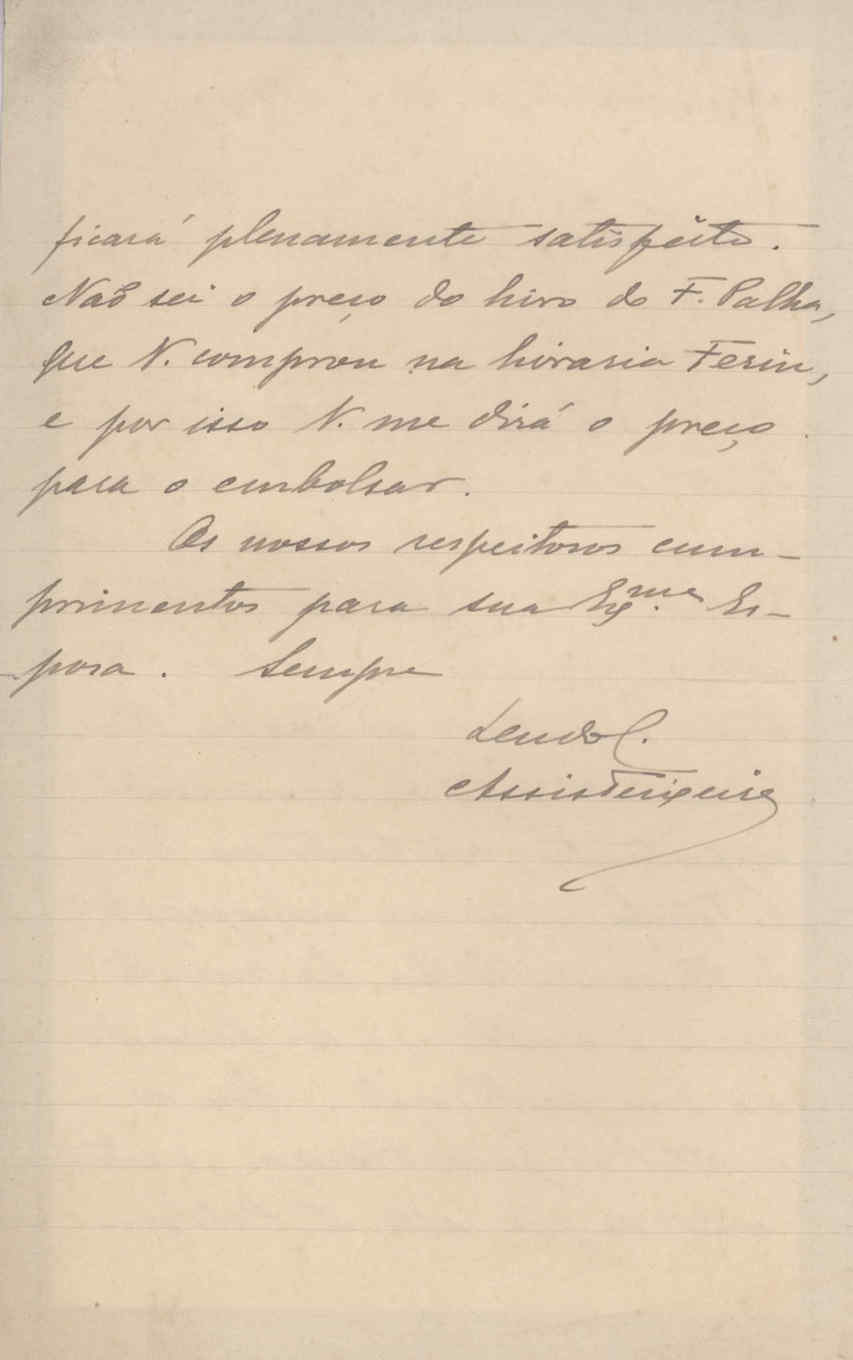 ficará plenamente satisfeito.
Não sei o preço do livro do F. Palha,
que V. comprou na livraria Ferin,
e por isso V. me dirá o preço
para o embolsar.
Os nossos respeitosos cum-
primentos para sua Ex.ma Es-
posa. Sempre
Assis Teixeira